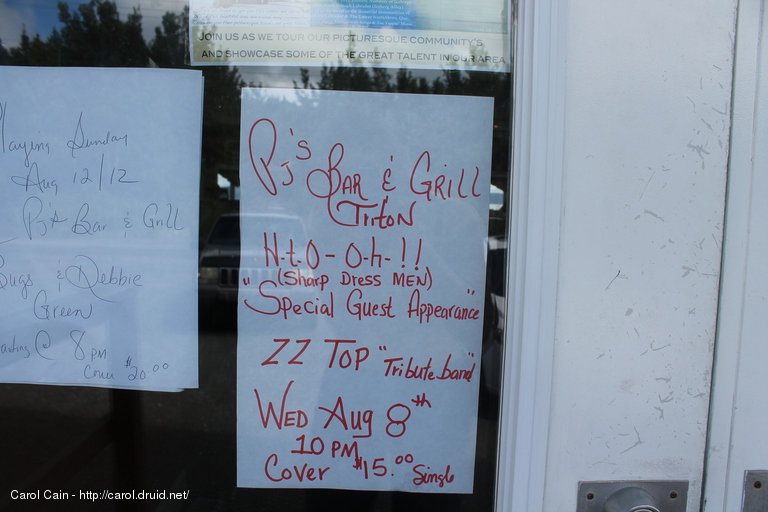 JOIN US AS WE TOUR OUR PICTURESQUE COMMUNITY'S
AND SHOWCASE SOME OF THE GREAT TALENT IN OUR AREA
Playing Sunday
Aug 12/12
PJ's Bar & Grill
Bugs & Debbie
Green
Starting @ 8 PM
Cover $20.00
PJ's BAR & GRILL
TRITON
H-t.O-O-h-!!
(SHARP DRESS MEN)
"Special Guest Appearance"
ZZ TOP "Tribute band"
WED Aug 8th
10 PM
COVER $15.00 Single
Carol Cain - http://carol.druid.net/